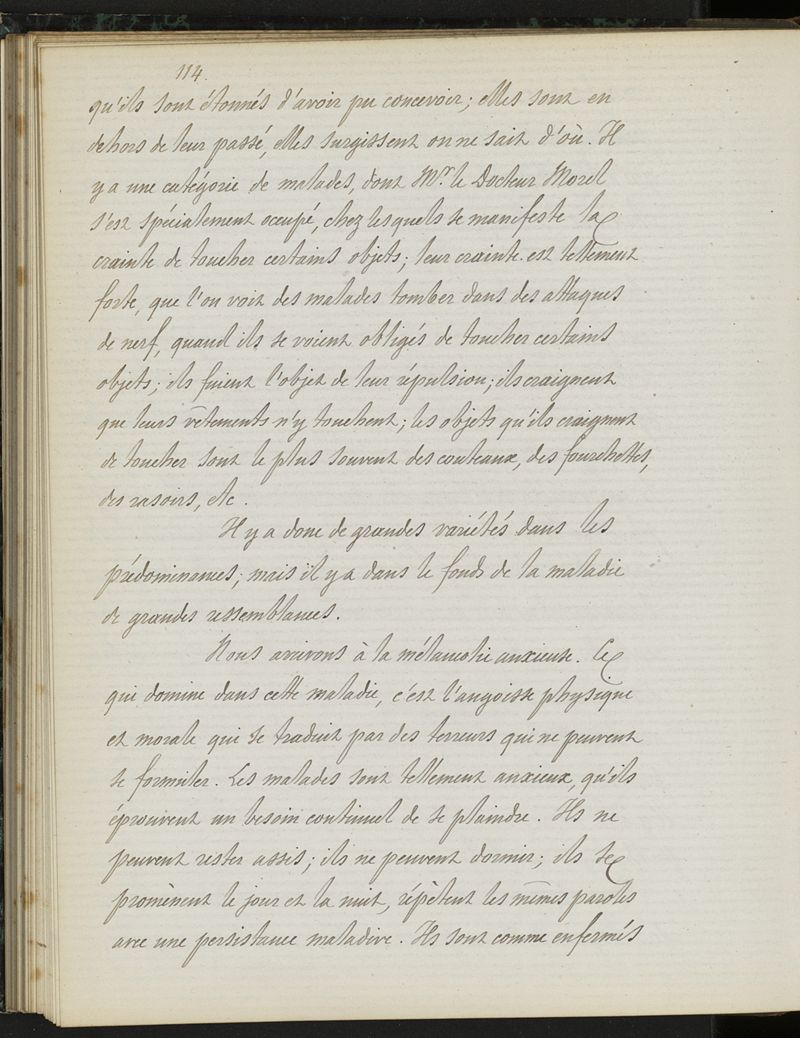 114.
qu'ils sont étonnés d'avoir pu concevoir; elles sont en
dehors de leur passé, elles surgissent on ne sait d'où. Il
y a une catégorie de malades, dont Mr. le Docteur Morel
s'est spécialement occupé, chez lesquels se manifeste la
crainte de toucher certains objets; leur crainte est tellement
forte, que l'on voit des malades tomber dans des attaques
de nerf, quand ils se voient obligés de toucher certains
objets; ils fuient l'objet de leur répulsion; ils craignent
que leurs vêtements n'y touchent; les objets qu'ils craignent
de toucher sont le plus souvent des couteaux, des fourchettes,
des rasoirs, etc.
Il y a donc de grandes variétés dans les
prédominances; mais il y a dans le fonds de la maladie
de grandes ressemblances.
Nous arrivons à la mélancolie anxieuse. Ce
qui domine dans cette maladie, c'est l'angoisse physique
et morale qui se traduit par des terreurs qui ne peuvent
se formuler. Les malades sont tellement anxieux, qu'ils
éprouvent un besoin continuel de se plaindre. Ils ne
peuvent rester assis; ils ne peuvent dormir; ils se
promènent le jour et la nuit, répètent les mêmes paroles
avec une persistance maladive. Ils sont comme enfermés